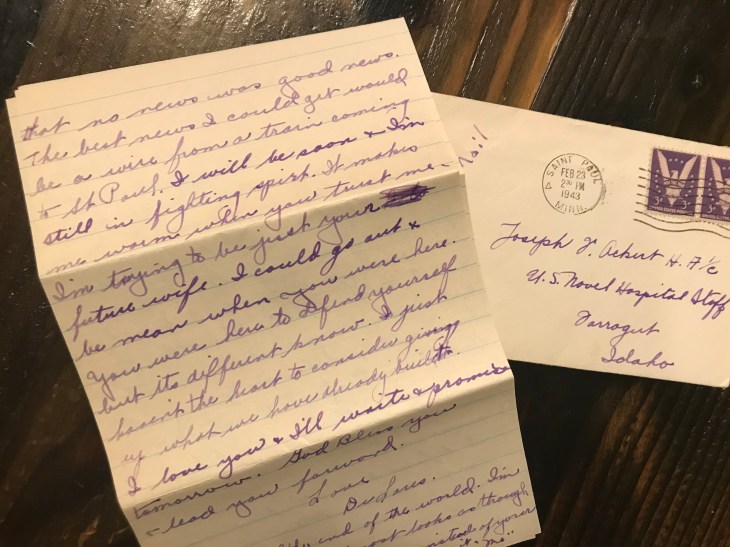 that no news was good news.
The best news I could get would
be a wire from a train coming
to St Paul. I will be soon & I'm
still in fighting spirit. It makes
me warm when you trust me -
I'm trying to be just your
future wife. I could go out &
be mean when you were here.
You were here to defend yourself
but its different know. I just
hasent the heart to consider giving
up what we have already built.
I love you & I'll write & promise
tomorrow. God Bless you
& lead you forward.
Love
end of the world. I'm
most books as through
instead of your
it. Me"
SAINT PAUL
FEB 23
2 30 PM
1943
MINN.
3¢
3¢
Joseph F. Ackert H. A. 1/c
U. S. Navel Hospital Staff
Farragut
Idaho